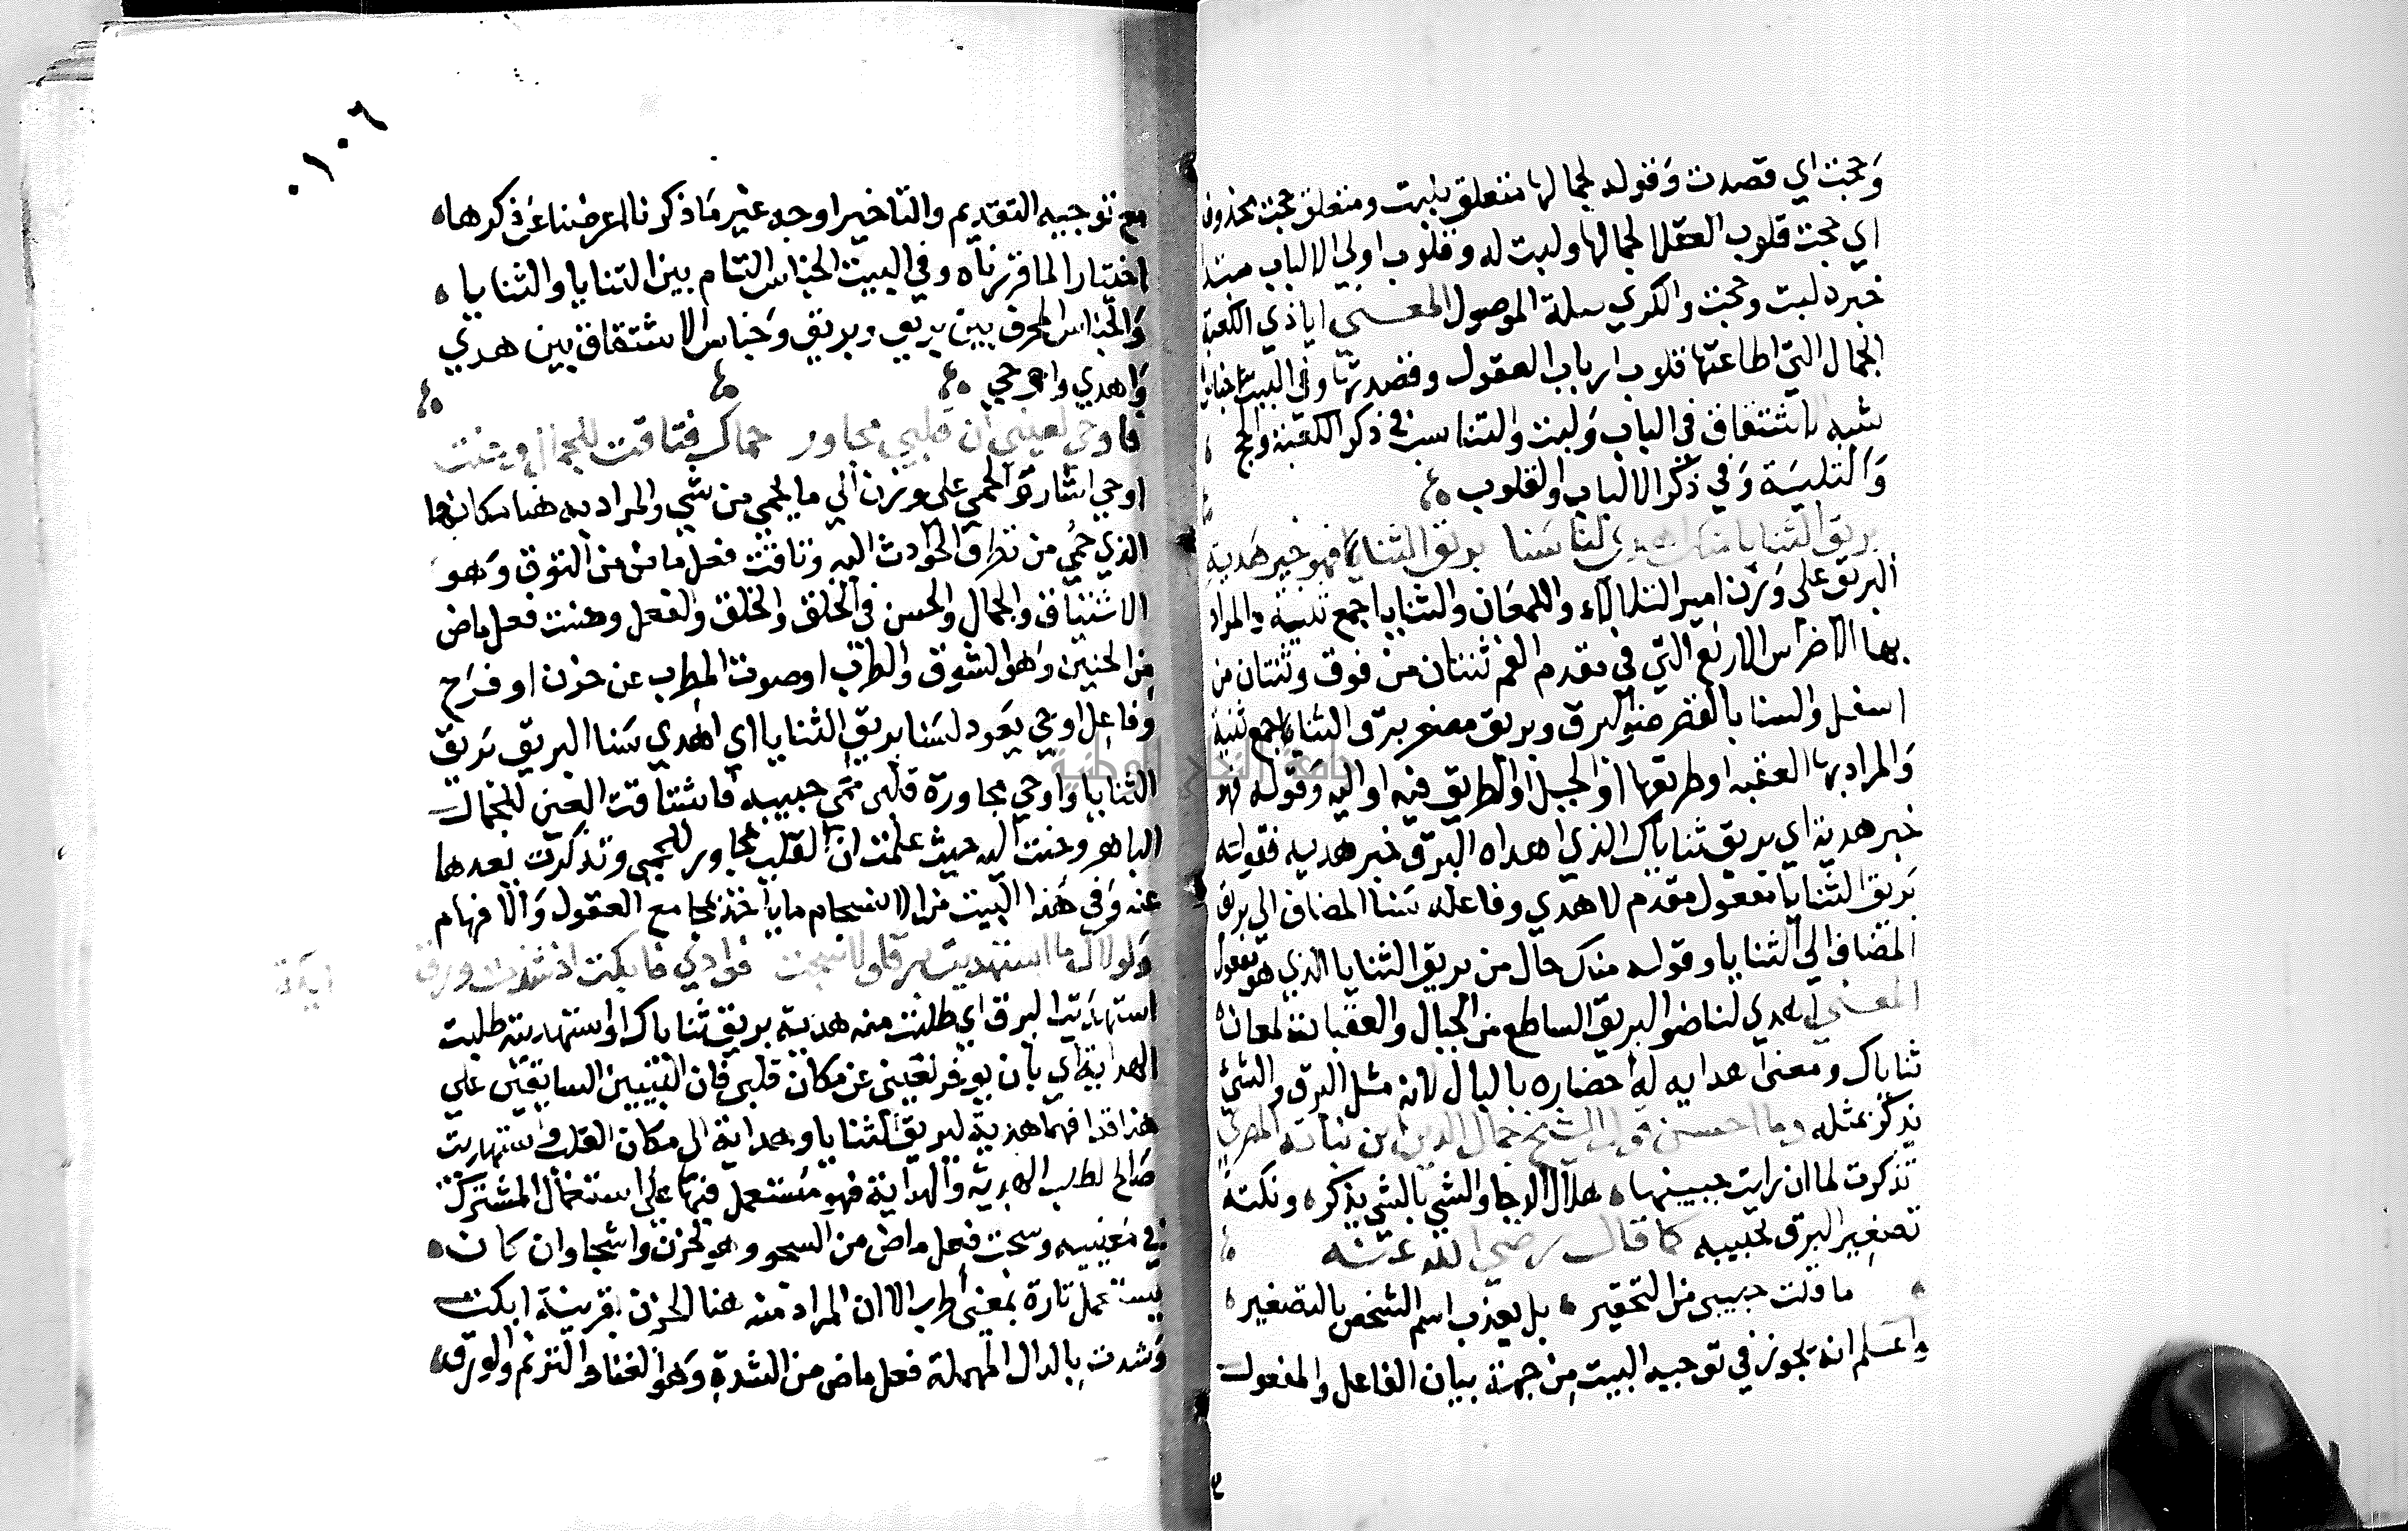 وحجت اي قصدت وقوله لجمالها متعلق بلبت ومتعلق حجت محذوف
اي حجت قلوب العقلا لجمالها ولبت له وقلوب اولي الالباب مبتدا
خبره لبت وحجت والكري سلة الموصول المعنـي اياذي الكعبة
الجمال التي اطاعتها قلوب ارباب العقول وقصدتها وفي البيت جناس
شبه الاشتقاق في الباب ولبت والتناسب في ذكر الكعبة والحج
والتلبية وفي ذكر الالباب والقلوب
بريق الثنايا منك اهدى لنا سنا بريق الثنايا فهو خير هدية
البريق على وزن امير التلالاء واللمعان والثنايا جمع ثنية والمراد
بها الاضراس الاربع التي في مقدم الفم ثنتان من فوق وثنتان من
اسفل والسنا بالقصر ضوالبرق وبريق مصغر برق والثنايا جمع ثنية
والمراد بها العقبه اوطريقها اوالجبل اوالطريق فيه او اليه وقوله فهو
خبر هدية اي بريق ثناياك الذي اهداه البرق خير هديه فقوله
بريق الثنايا مفعول مقدم لاهدي وفاعله سنا المضاف الى بريق
المضاف الى الثنايا وقوله منك حال من بريق الثنايا الذي هو مفعول
المعنـي اهدي لنا ضوالبريق الساطع من الجبال والعقبات لمعان
ثناياك ومعنى اهدايه له احضاره بالبال لانه مثل البرق والشئ
يذكر بمثله وما احسن قول الشيخ جمال الدين ابن نباته المصري
تذكرت لما ان رايت جبينها هلال الدجا والشي بالشي يذكر ونكتة
تصغير البرق تحبيبه كما قال رضي الله عنه
ما قلت حبيبي من التحقير بل يعذب اسم الشخص بالتصغير
واعـلم انه يجوز في توجيه البيت من جهة بيان الفاعل والمفعول
٠١٠٦
مع توجيه التقديم والتاخير اوجه غير ما ذكرنا اعرضنا عن ذكرها
اختيارا لما قررناه وفي البيت الجناس التام بين الثنايا والثنايا
والجناس المحرف بين بريق وبريق وجناس الاشتقاق بين هدي
واهدي واوحي
فاوحى لعيني ان قلبي مجاور حماك فتاقت للجمال وحنت
اوحي اشار والحمي على وزن الي ما يحمي من شي والمراد به هنا مكانها
الذي حمي من تطرق الحوادث اليه وتاقت فعل ماض من التوق وهو
الاشتياق والجمال والحسن في الخلق والخلق والفعل وحنت فعل ماض
من الحنين وهو الشوق والطرب اوصوت المطرب عن حزن او فرح
وفاعل اوحي يعود لسنا بريق الثنايا اي اهدي سنا البريق بريق
الثنايا واوحي مجاورة قلبى حمى حبيبه فاشتاقت العين للجمال
الباهر وحنت اليه حيث علمت ان القلب مجاور للحمى وتذكرت بعدها
عنه وفي هذا البيت من الانسجام ما ياخذ بمجامع العقول والافهام
ولولاك ما استهديت برقا ولا شجت فوادي فابكت اذ شدت ورق ايكة
استهديت البرق اي طلبت منه هدية بريق ثناياك اواستهديته طلبت
الهداية اي بان يوفر لعيني عن مكان قلبى فان البيتين السابقين على
هذا قد افهما هدية لبريق الثنايا وهداية الى مكان القلب واستهديت
صالح لطلب الهدية والهداية فهو مستعمل فيها على استعمال المشترك
في معنييه وشجت فعل ماض من الشجو وهو الحزن واشجا وان كان
يستعمل تارة بمعنى اطرب الا ان المراد منه هنا الحزن بقرينة ابكت
وشدت بالدال المهملة فعل ماض من الشدو وهو الغناء والترنم والورق